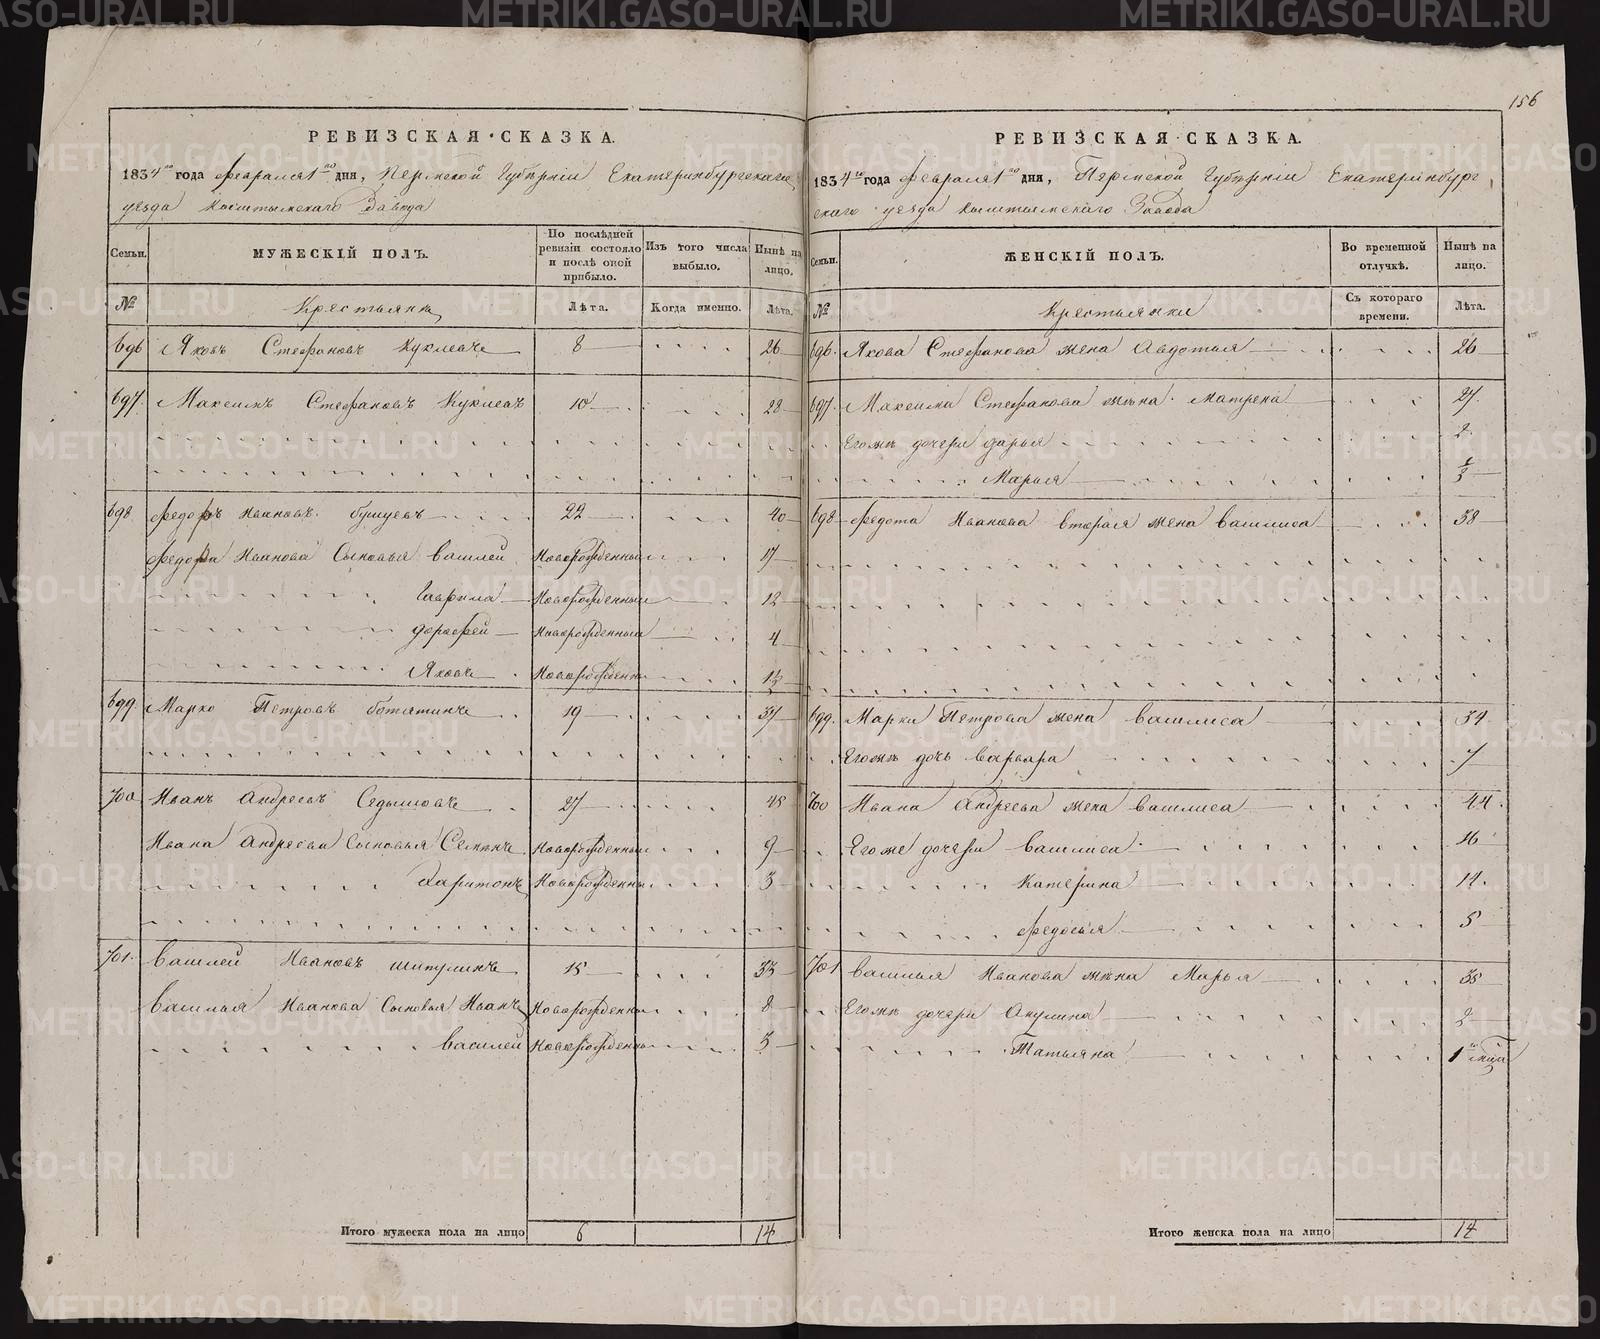 156
РЕВИЗСКАЯ СКАЗКА.
1834го года февраля 1го дня, Пермской Губерніи Екатеринбургскаго
уезда Кыштымскаго Завода
Семьи.
МУЖЕСКІЙ ПОЛЪ.
По послѣдней ревизіи состояло и послѣ оной прибыло.
Изъ того числа выбыло.
Нынѣ на лицо.
№
Крестьянъ
Лѣта.
Когда именно.
Лѣта.
696 Яковъ Стефановъ 8 26
697. Максимъ Стефановъ 10 28
698 Федоръ Ивановъ 22 40
Федора Иванова Сыновья Василей Новорожденный 17
Гаврила Новорожденный 12
Дорофей Новорожденный 4
Яковъ Новорожденны 1½
699. Марко Петровъ 19 37
700 Иванъ Андреевъ 27 45
Ивана Андреева Сыновья Семенъ Новорожденный 9
Харитонъ Новорожденны 3
701. Василей Ивановъ Шитулинъ 15 33
Василья Иванова Сыновья Иванъ Новорожденны 8
Василей Новорожденны 3
Итого мужеска пола на лицо 6 14
РЕВИЗСКАЯ СКАЗКА.
1834го года февраля 1го дня, Пермской Губерніи Екатеринбург
скаго уезда Кыштымскаго Завода
Семьи.
ЖЕНСКІЙ ПОЛЪ.
Во временной отлучкѣ.
Нынѣ на лицо.
№
Крестьянки
Съ котораго времени.
Лѣта.
696. Якова Стефанова жена Авдотья 26
697. Максима Стефанова жена Матрена 27.
Егожъ дочери Дарья 2.
Марья
698 Федота Иванова вторая жена Василиса 38
699. Марки Петрова жена Василиса 34
Егожъ дочь Варвара 7
700 Ивана Андреева жена Василиса 44.
Егоже дочери Василиса 16
Катерина 14.
Федосья 5
701 Василья Иванова жена Марья 35
Егожъ дочери Акулина 2
Татьяна 1
Итого женска пола на лицо 14
METRIKI.GASO-URAL.RU